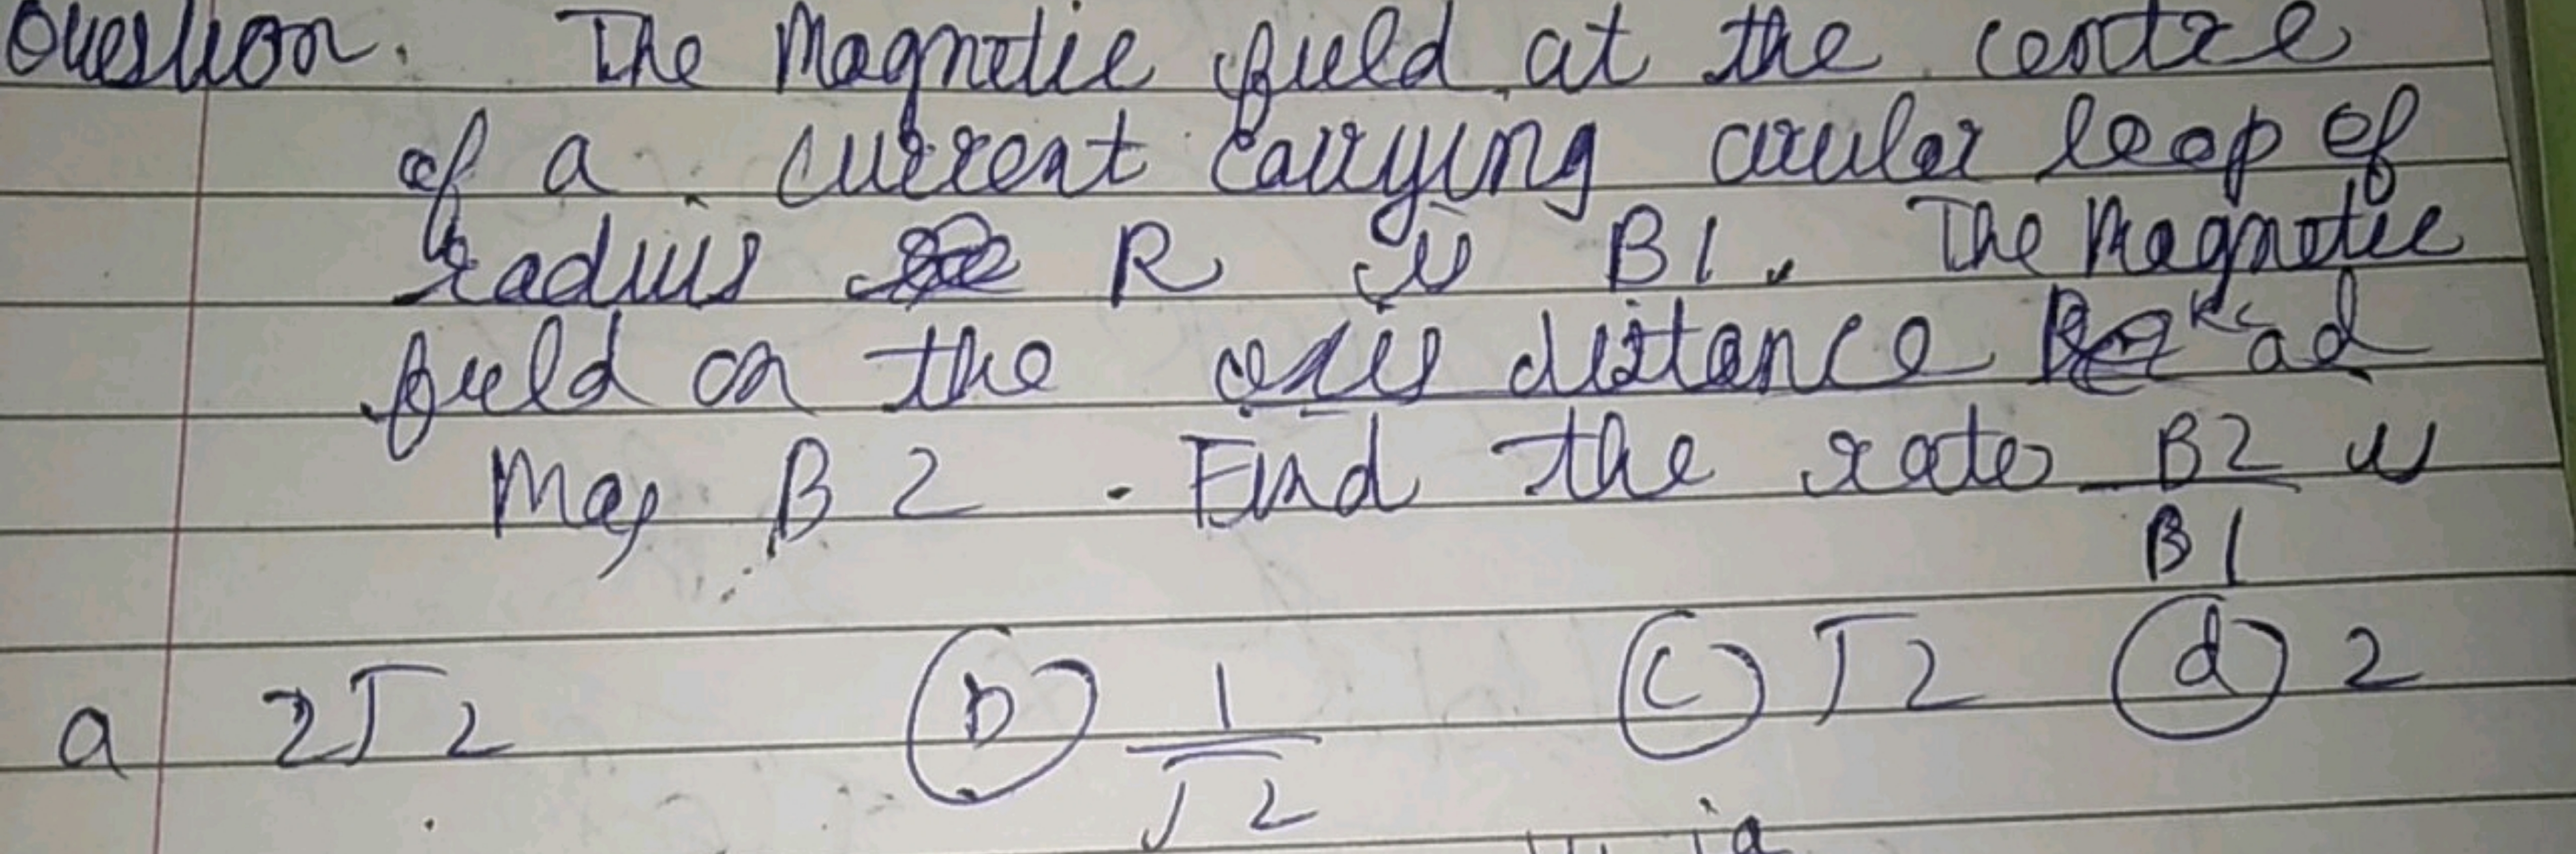 Question. The Magnetic field at the centre
of a current carrying circular loop of
radius R is B1. The Magnetic
field on the axis distance
B2. Find the rate B2 is
B1
a 2√2 (b) 1 (c) √2 (d) 2
√2